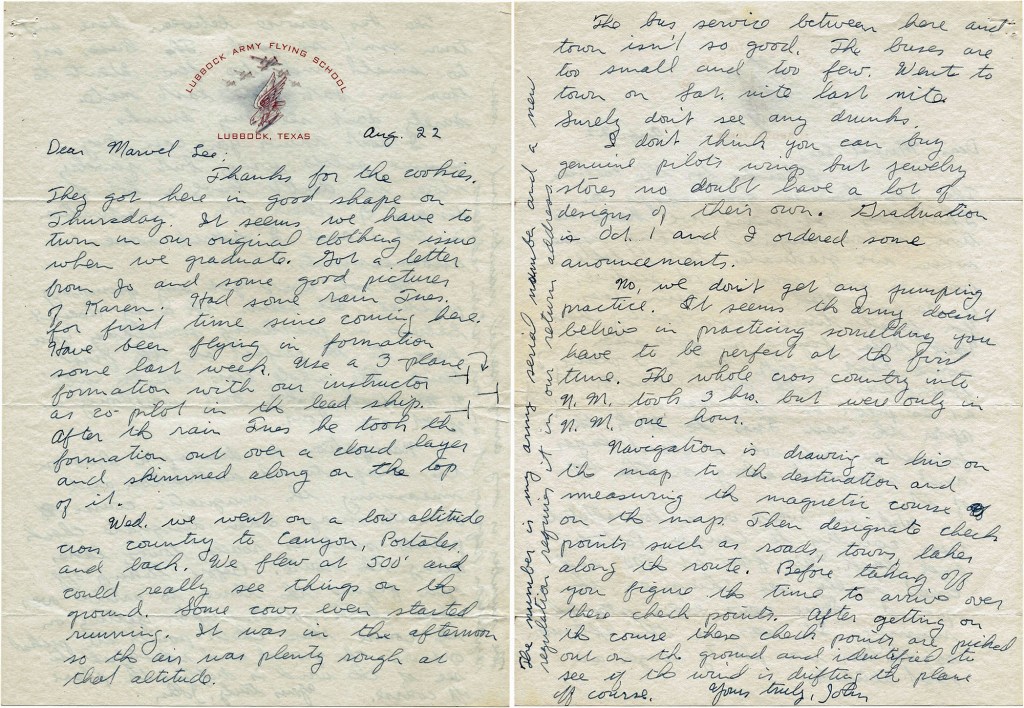 LUBBOCK ARMY FLYING SCHOOL
LUBBOCK, TEXAS
Aug. 22
Dear Marvel Lee:
Thanks for the cookies.
They got here in good shape on
Thursday. It seems we have to
turn in our original clothing issue
when we graduate. Got a letter
from Jo and some good pictures
of Karen. Had some rain Tues.
for first time since coming here.
Have been flying in formation
some last week. Use a 3 plane
formation with our instructor
as co-pilot in the lead ship.
After the rain Tues he took the
formation out over a cloud layer
and skimmed along on the top
of it.
Wed. we went on a low altitude
cross country to Canyon, Portales,
and back. We flew at 500' and
could really see things on the
ground. Some cows even started
running. It was in the afternoon
so the air was plenty rough at
that altitude.
The bus service between here and
town isn't so good. The buses are
too small and too few. Went to
town on Sat. nite last nite.
Surely don't see any drunks.
I don't think you can buy
genuine pilots wings but jewelry
stores no doubt have a lot of
designs of their own. Graduation
is Oct. 1 and I ordered some
anouncements.
No, we don't get any jumping
practice. It seems the army doesn't
believe in practicing something you
have to be perfect at the first
time. The whole cross country into
N. M. took 3 hrs. but were only in
N. M. one hour.
Navigation is drawing a line on
the map to the destination and
measuring the magnetic course
on the map. Then designate check
points such as roads, towns, lakes
along the route. Before taking off
you figure the time to arrive over
these check points. After getting on
the course these check points are picked
out on the ground and identified to
see if the wind is drifting the plane
off course. Yours truly, John
The number is my army serial number and a new
regulation requires it in our return address